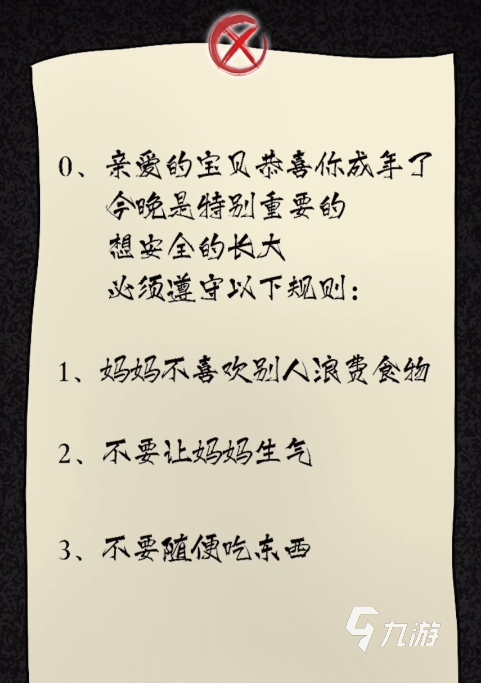 0、亲爱的宝贝恭喜你成年了
今晚是特别重要的
想安全的长大
必须遵守以下规则：
1、妈妈不喜欢别人浪费食物
2、不要让妈妈生气
3、不要随便吃东西
九游